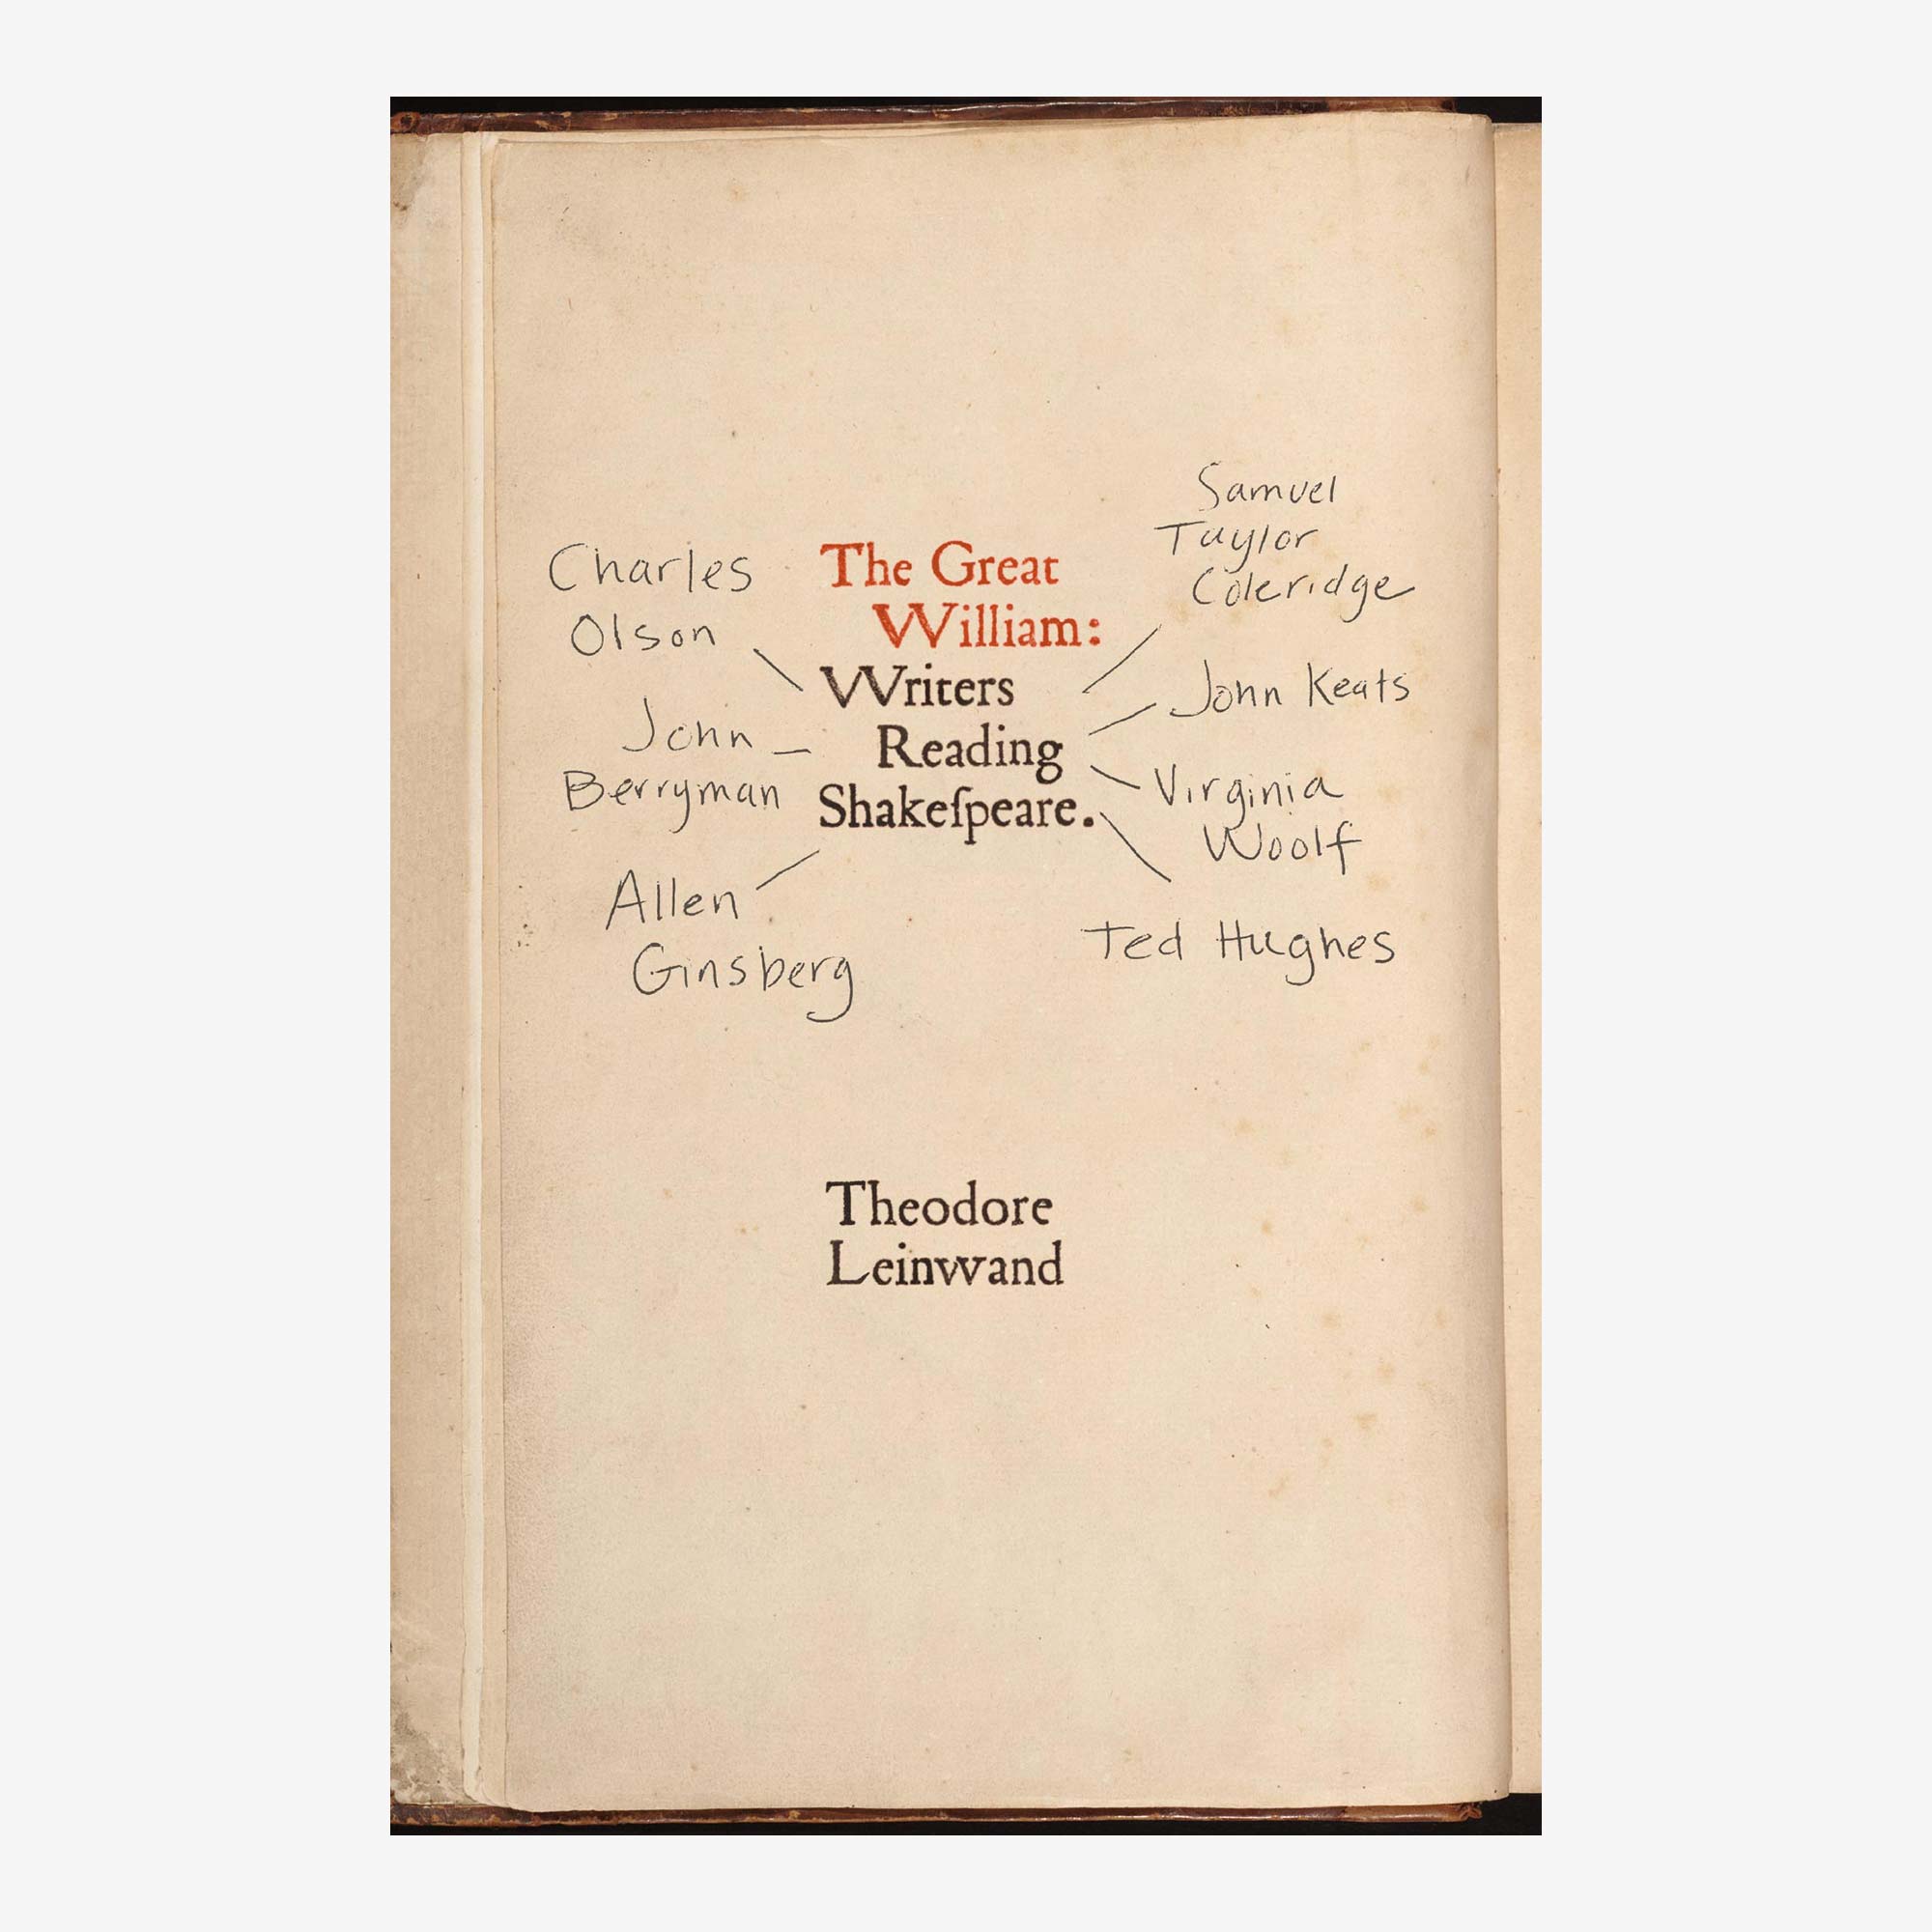 The Great
William:
Writers
Reading
Shakeſpeare.
Charles
Olson
John
Berryman
Allen
Ginsberg
Samuel
Taylor
Coleridge
John Keats
Virginia
Woolf
Ted Hughes
Theodore
Leinwand